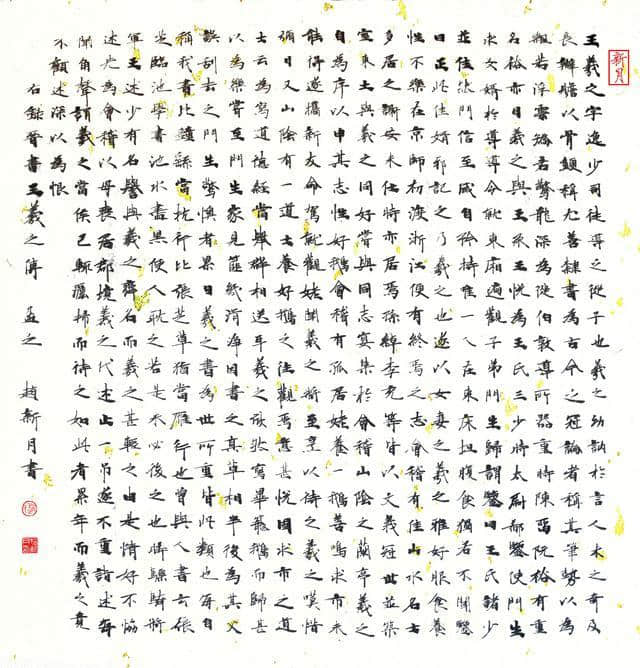 新月
王羲之字逸少司徒導之從子也羲之幼訥於言人未之奇及
長辯贍以骨鯁稱尤善隸書為古今之冠論者稱其筆勢以為
飄若浮雲矯若驚龍深為從伯敦導所器重時陳留阮裕有重
名裕亦目羲之與王承王悅為王氏三少時太尉郗鑒使門生
求女婿於導導令就東廂遍觀子弟門生歸謂鑒曰王氏諸少
並佳然聞信至咸自矜持唯一人在東床坦腹食獨若不聞鑒
曰正此佳婿邪記之乃羲之也遂以女妻之羲之雅好服食養
性不樂在京師初渡浙江便有終焉之志會稽有佳山水名士
多居之謝安未仕時亦居焉孫綽李充等皆以文義冠世並築
室東土與羲之同好嘗與同志宴集於會稽山陰之蘭亭羲之
自為序以申其志性好鵝會稽有孤居姥養一鵝善鳴求市未
能得遂攜親友命駕就觀姥聞羲之將至烹以待之羲之嘆惜
彌日又山陰有一道士養好鵝之往觀焉意甚悅固求市之道
士云為寫道德經當舉群相送耳羲之欣然寫畢籠鵝而歸甚
以為樂嘗至門生家見篚幾滑淨因書之真草相半後為其父
誤刮去之門生驚懊者累日羲之書為世所重皆此類也每自
稱我書比鍾繇當抗行比張芝草猶當雁行也曾與人書云張
芝臨池學書池水盡黑使人耽之若是未必後之也時驃騎將
軍王述少有名譽與羲之齊名而羲之甚輕之由是情好不協
述先為會稽以母喪居郡境羲之代述止一吊遂不重詣述每
聞角聲謂羲之當候己輒灑掃而待之如此者累年而羲之竟
不顧述深以為恨
右錄晉書王羲之傳 孟之 趙新月書